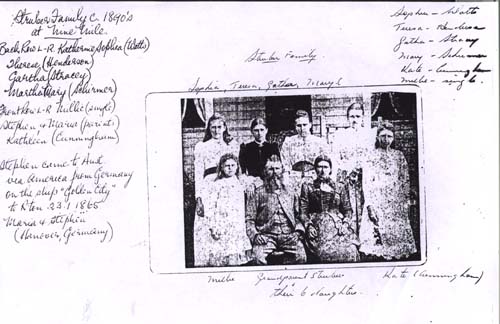 Struber Family C. 1890's
at Nine Mile.
Back Row L-R. Katherine Sophia (Watts)
Therese, (Henderson)
Gartha (Stracey)
Martha Mary (Schirmer)
Front Row L-R Millie (single)
Stephen & Maria (parents)
Kathleen (Cunningham)
Stephen came to Aust
via America from Germany
on the ship "Golden City"
to R'ton 23/1 1865
Maria & Stephen
(Hanover, Germany)
Struber Family
Sophia, Teresa, Gatha, Mary
Sophia - Watts
Teresa - Henderson
Gatha - Stracy
Mary - Schirmer
Kate - Cunningham
Millie - single.
Millie Grandparent Strubers Kate (Cunningham)
& their 6 daughters.